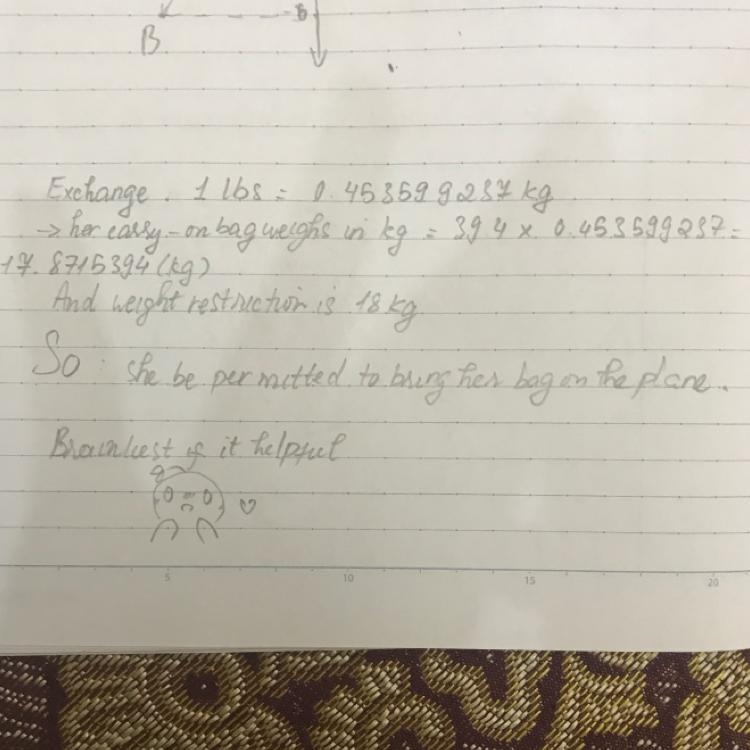 B
B
Exchange. 1 lbs = 0.453599237 kg
→ her carry-on bag weighs in kg = 39.4 x 0.453599237 =
17.8715394 (kg)
And weight restriction is 18 kg
So: she be permitted to bring her bag on the plane.
Brainliest if it helpful
5 10 15 20